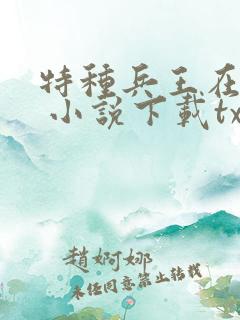 特種兵王在
小説下載tx
趙婀娜
未任同意禁止轉載